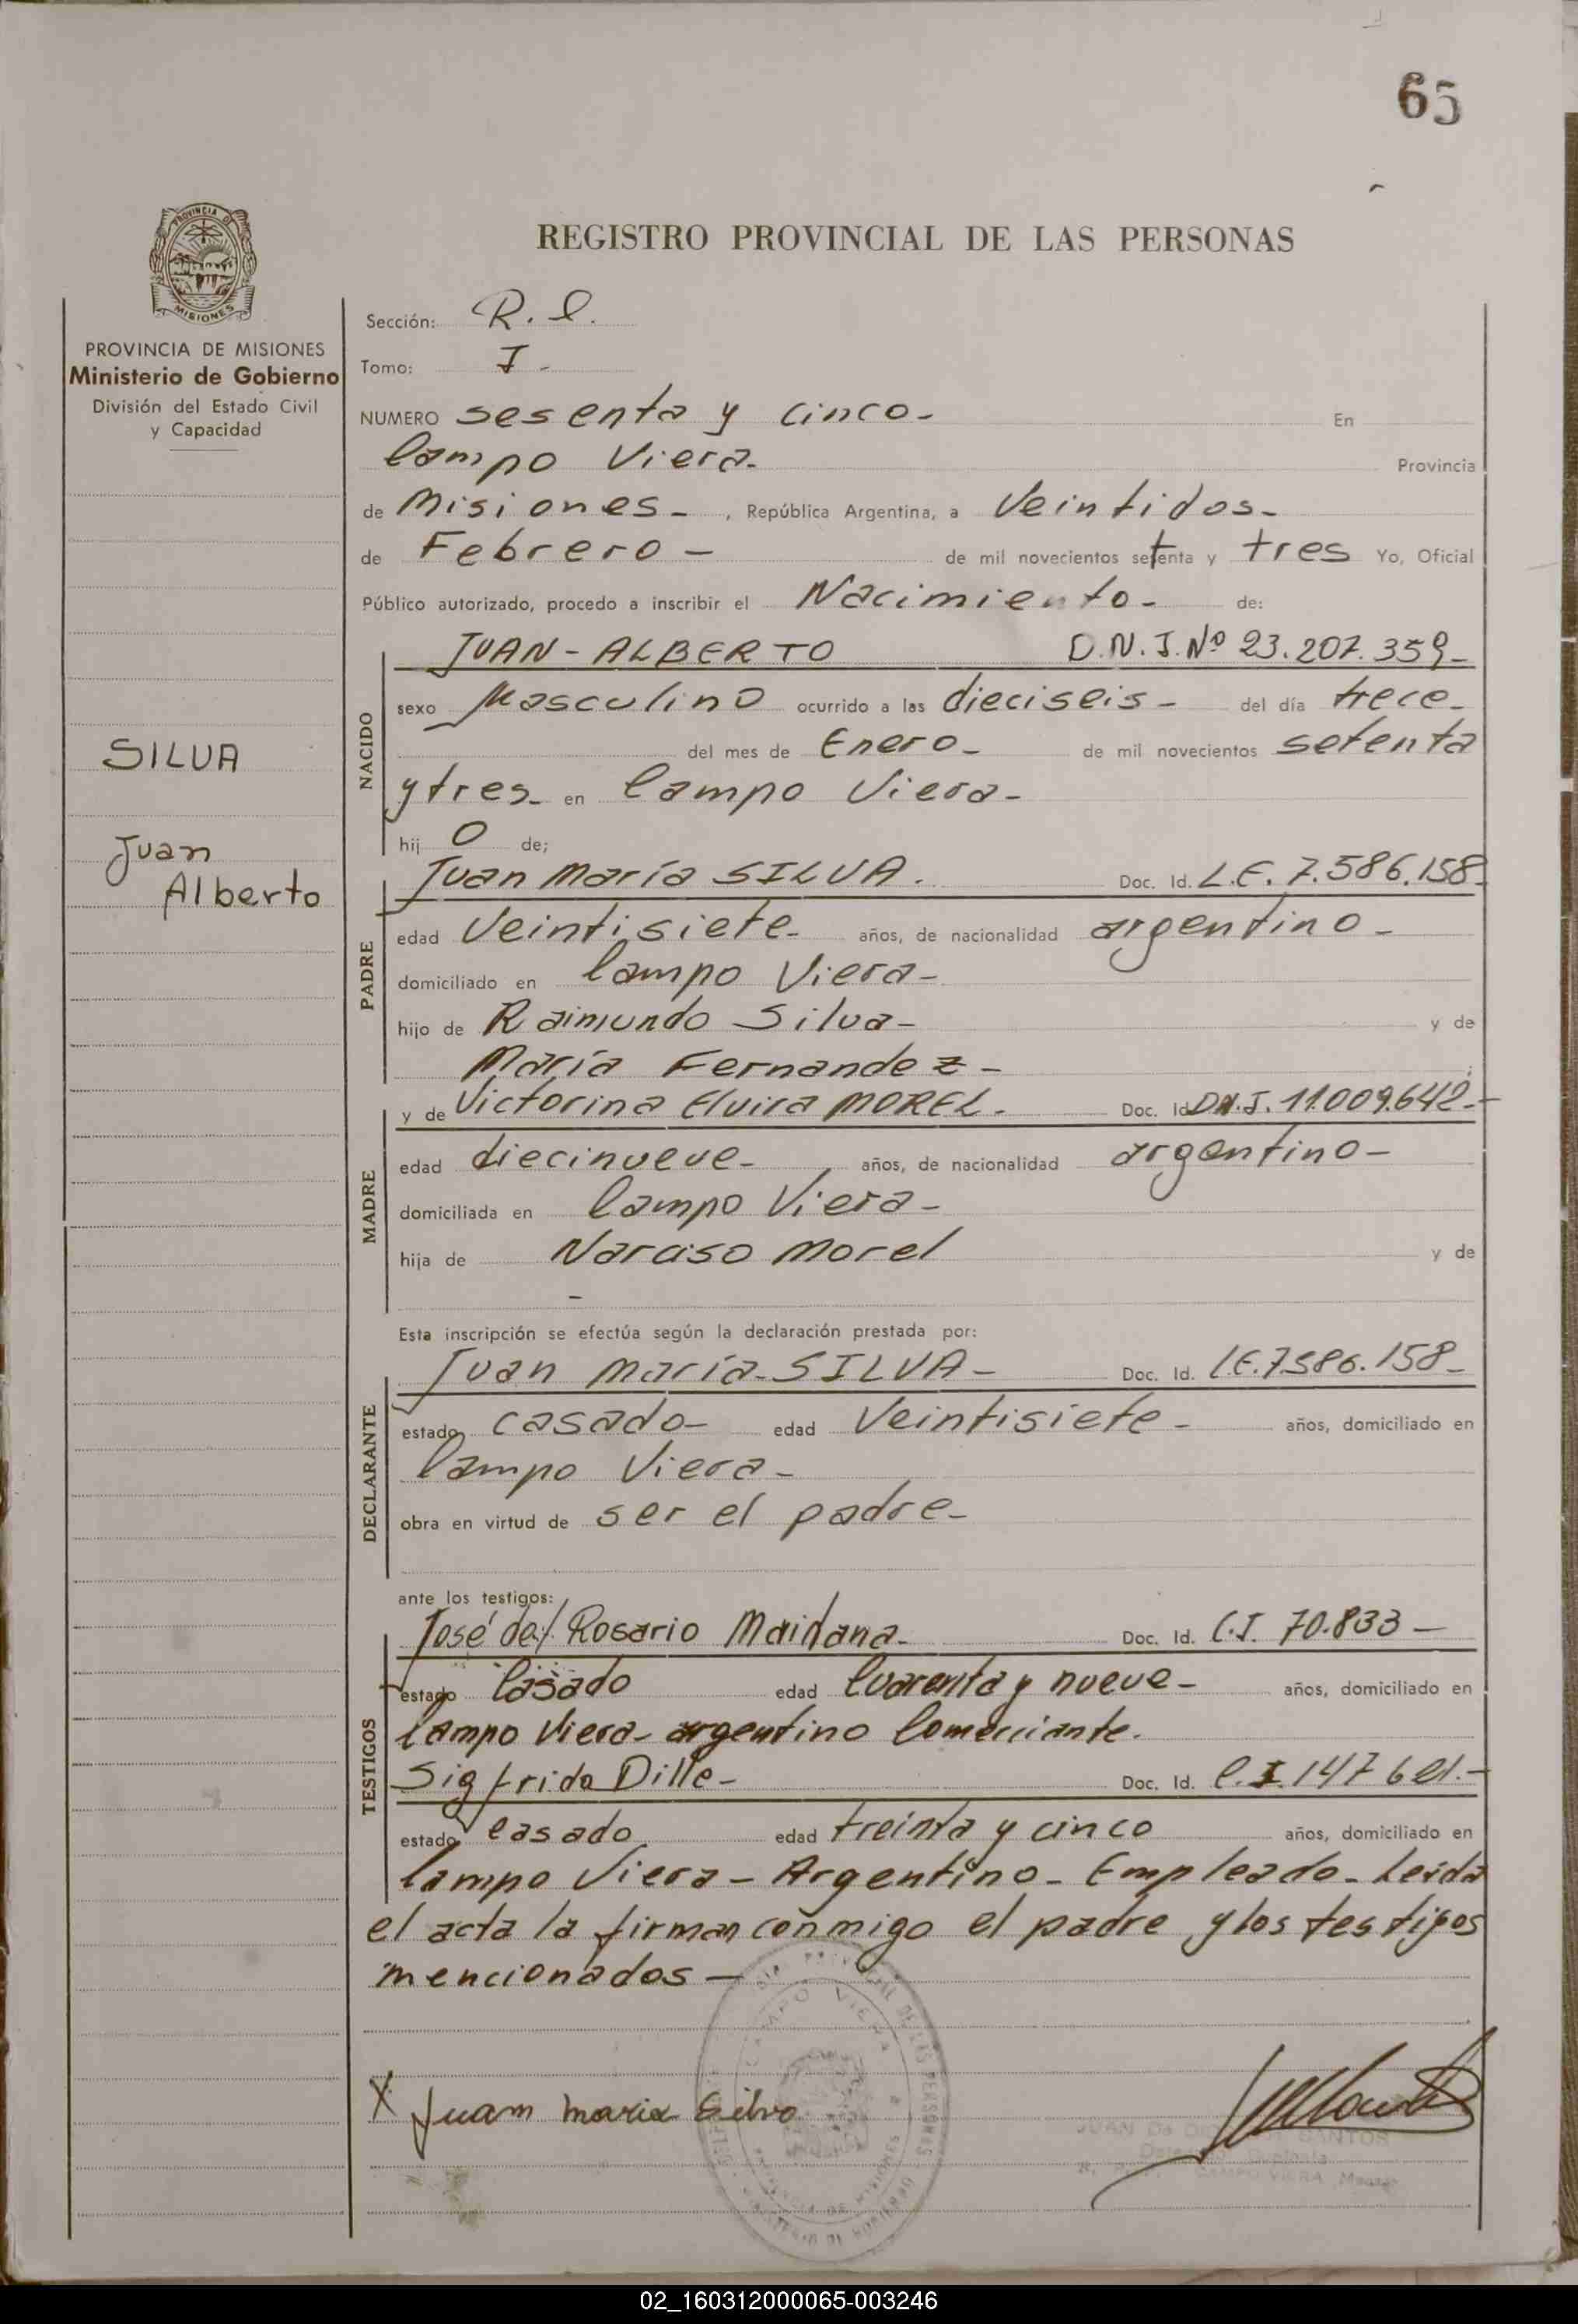 65
REGISTRO PROVINCIAL DE LAS PERSONAS
PROVINCIA DE MISIONES
Ministerio de Gobierno
División del Estado Civil
y Capacidad
SILVA
Juan
Alberto
Sección: R. C.
Tomo: I -
NUMERO sesenta y cinco- En
Campo Viera- Provincia
de Misiones- , República Argentina, a Veintidos-
de Febrero - de mil novecientos setenta y tres Yo, Oficial
Público autorizado, procedo a inscribir el Nacimiento- de:
NACIDO
JUAN-ALBERTO D.N.I. Nº 23.207.359-
sexo Masculino ocurrido a las dieciseis- del día trece-
del mes de Enero- de mil novecientos setenta
y tres- en Campo Viera-
hij o de;
PADRE
Juan María SILVA. Doc. Id. L.E. 7.586.158-
edad Veintisiete- años, de nacionalidad argentino-
domiciliado en Campo Viera-
hijo de Raimundo Silva- y de
María Fernandez-
MADRE
y de Victorina Elvira MOREL. Doc. Id. D.N.I. 11.009.642.-
edad diecinueve- años, de nacionalidad argentino-
domiciliada en Campo Viera-
hija de Narciso Morel y de
-
Esta inscripción se efectúa según la declaración prestada por:
DECLARANTE
Juan María-SILVA- Doc. Id. L.E.7.586.158-
estado casado- edad Veintisiete- años, domiciliado en
Campo Viera-
obra en virtud de ser el padre-
ante los testigos:
TESTIGOS
José del Rosario Maidana- Doc. Id. C.I. 70.833-
estado Casado edad Cuarenta y nueve- años, domiciliado en
Campo Viera- argentino Comerciante.
Sigfrido Dille- Doc. Id. C.I. 147
estado casado edad treinta y cinco años, domiciliado en
Campo Viera- Argentino- Empleado- Leida
el acta la firman conmigo el padre y los testigos
mencionados-
X Juam maria Silva
CAMPO VIERA
PROVINCIA DE MISIONES
02_160312000065-003246